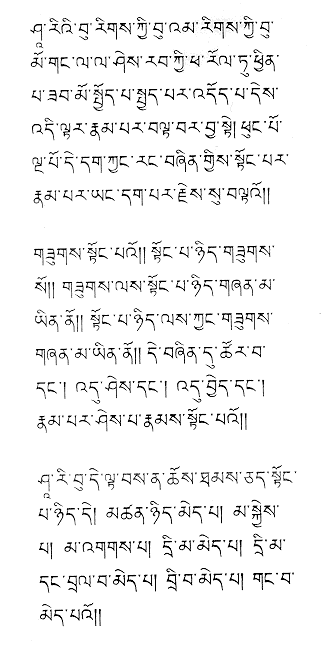 ཤཱ་རིའི་བུ་རིགས་ཀྱི་བུ་འམ་རིགས་ཀྱི་བུ་
མོ་གང་ལ་ལ་ཤེས་རབ་ཀྱི་ཕ་རོལ་ཏུ་ཕྱིན་
པ་ཟབ་མོ་སྤྱོད་པ་སྤྱད་པར་འདོད་པ་དེས་
འདི་ལྟར་རྣམ་པར་བལྟ་བར་བྱ་སྟེ། ཕུང་པོ་
ལྔ་པོ་དེ་དག་ཀྱང་རང་བཞིན་གྱིས་སྟོང་པར་
རྣམ་པར་ཡང་དག་པར་རྗེས་སུ་བལྟའོ།།
གཟུགས་སྟོང་པའོ།། སྟོང་པ་ཉིད་གཟུགས་
སོ།། གཟུགས་ལས་སྟོང་པ་ཉིད་གཞན་མ་
ཡིན་ནོ།། སྟོང་པ་ཉིད་ལས་ཀྱང་གཟུགས་
གཞན་མ་ཡིན་ནོ།། དེ་བཞིན་དུ་ཚོར་བ་
དང་། འདུ་ཤེས་དང་། འདུ་བྱེད་དང་།
རྣམ་པར་ཤེས་པ་རྣམས་སྟོང་པའོ།།
ཤཱ་རི་བུ་དེ་ལྟ་བས་ན་ཆོས་ཐམས་ཅད་སྟོང་
པ་ཉིད་དེ། མཚན་ཉིད་མེད་པ། མ་སྐྱེས་
པ། མ་འགགས་པ། དྲི་མ་མེད་པ། དྲི་མ་
དང་བྲལ་བ་མེད་པ། བྲི་བ་མེད་པ། གང་བ་
མེད་པའོ།།